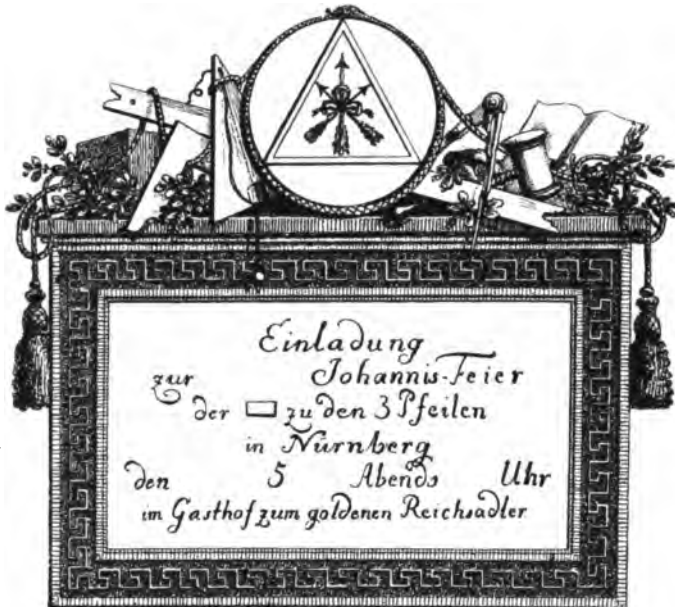 Einladung
zur Johannis-Feier
der ▭ zu den 3 Pfeilen
in Nürnberg
den 5 Abends Uhr
im Gasthof zum goldenen Reichsadler